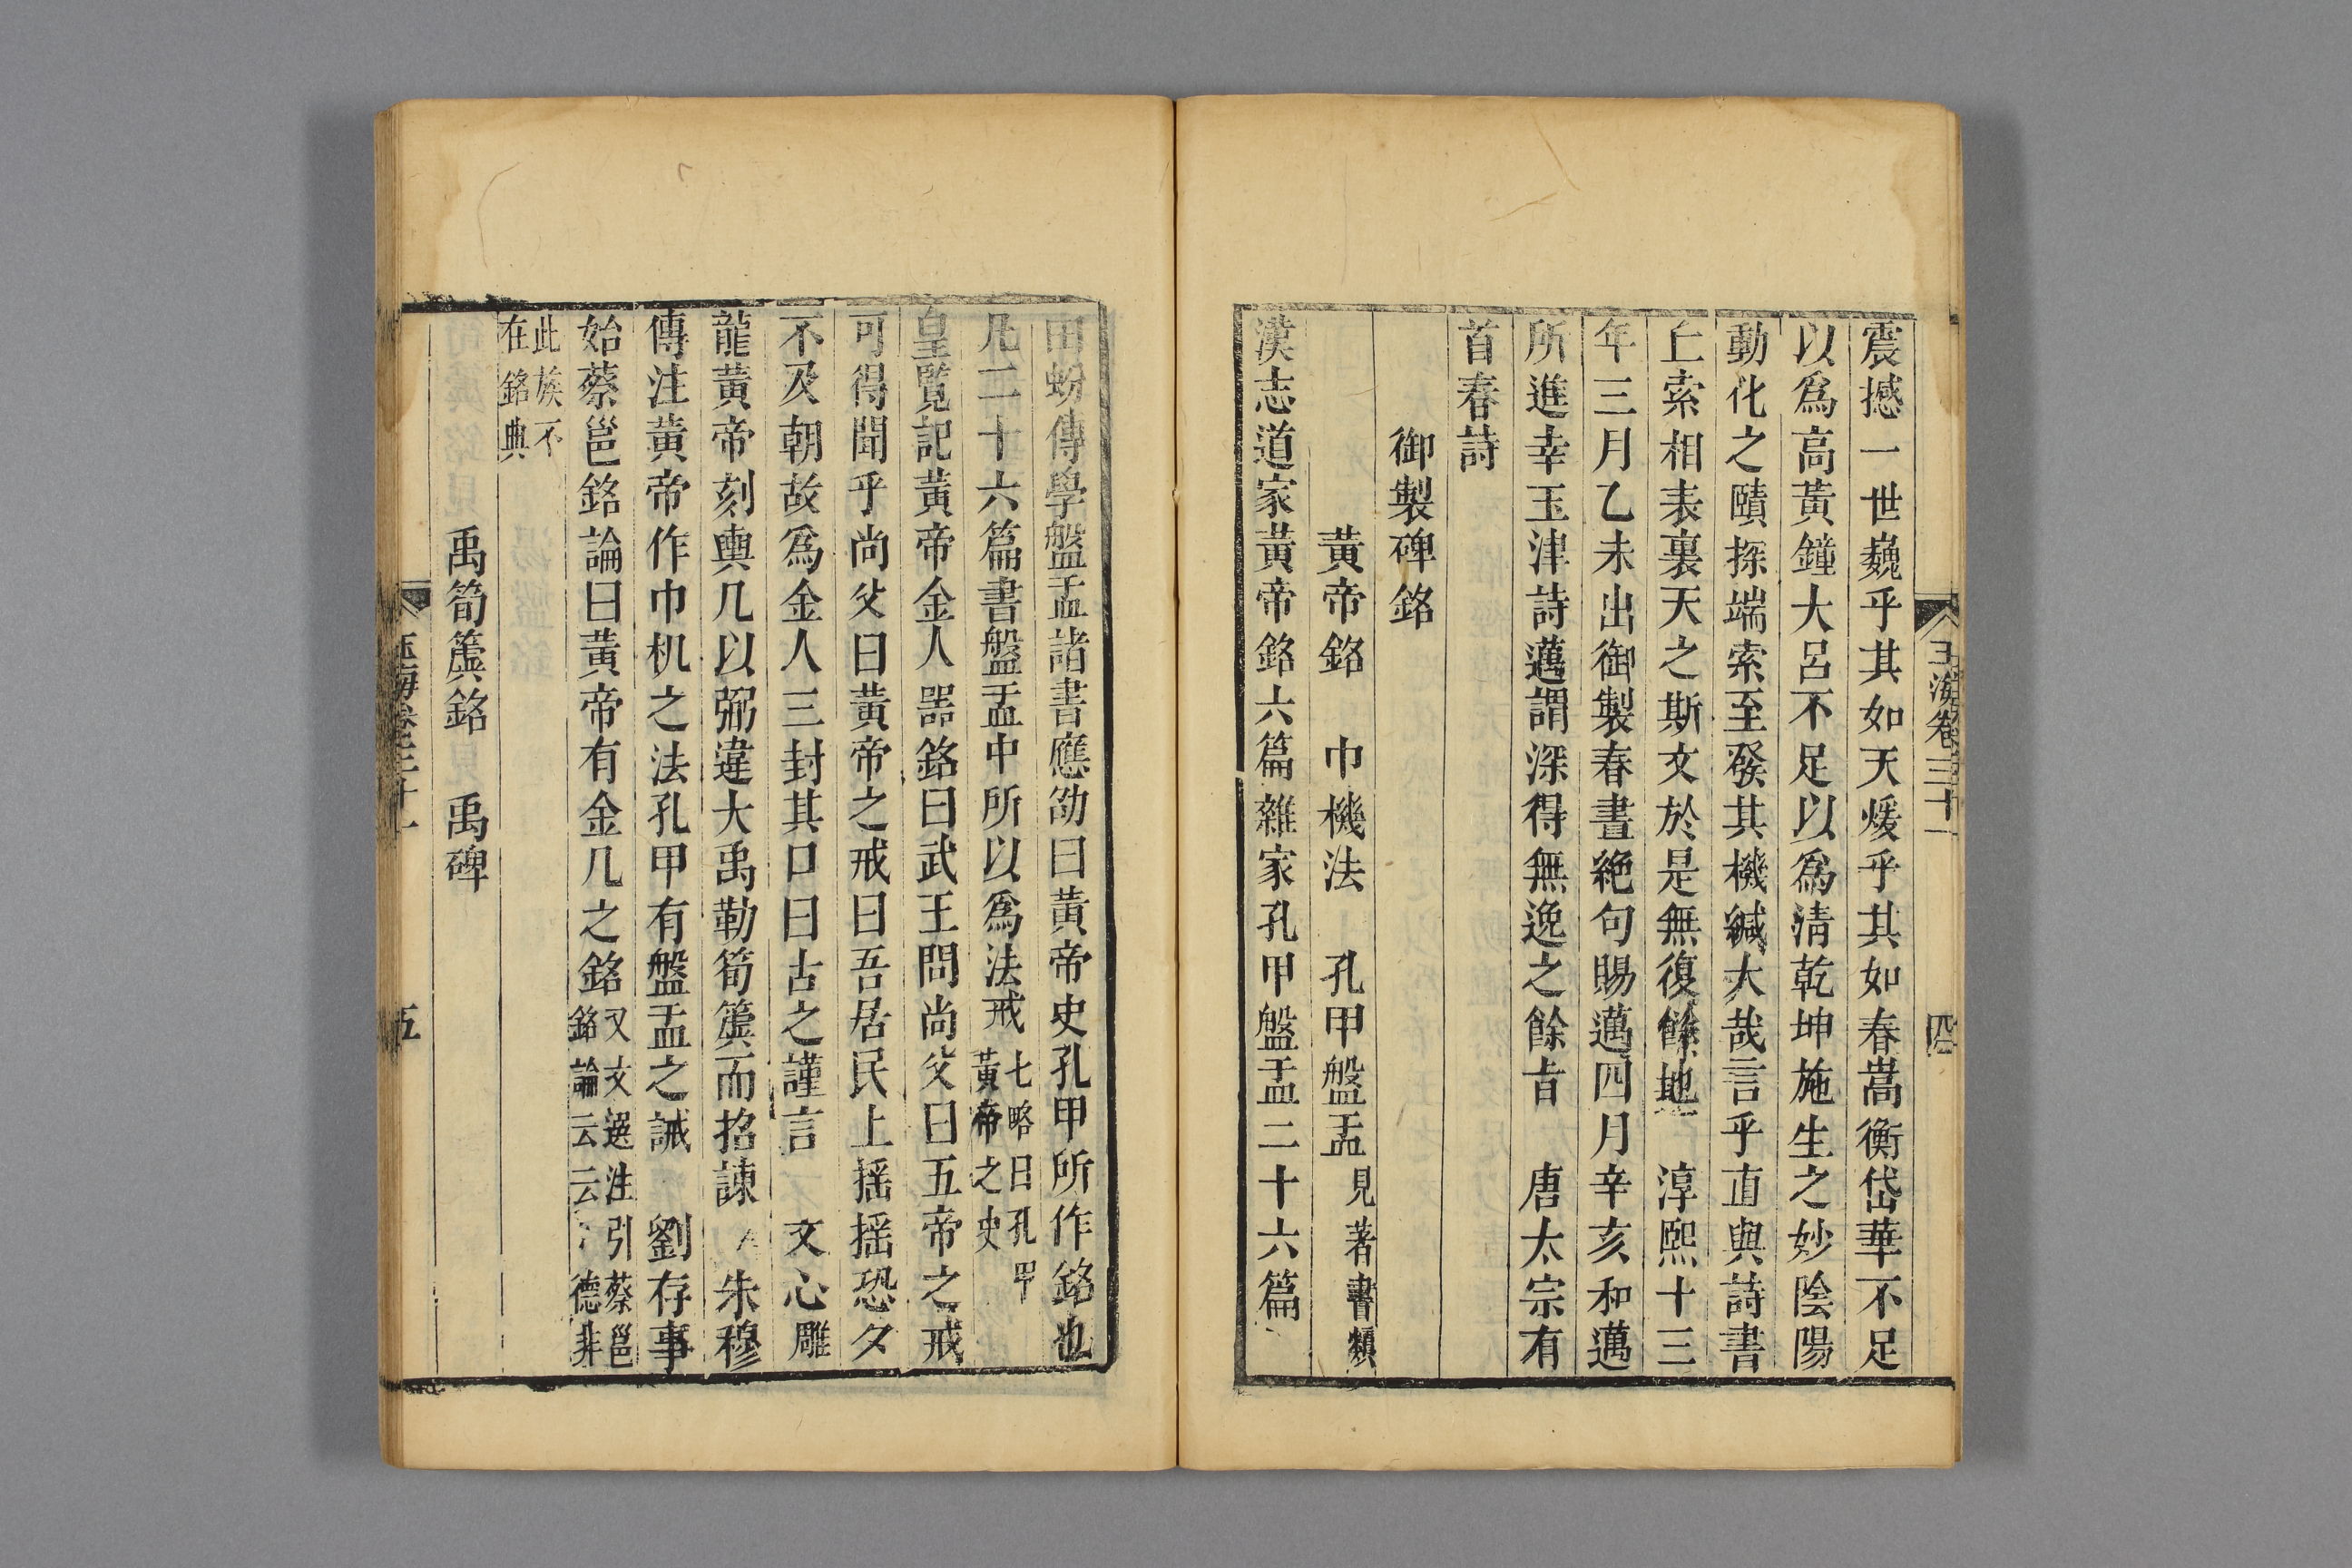 玉海卷三十一
四
震撼一世巍乎其如天煖乎其如春嵩衡岱華不足
以爲高黃鐘大呂不足以爲淸乾坤施生之妙陰陽
動化之賾探端索至發其機緘大哉言乎直與詩書
上索相表裏天之斯文於是無復餘地 淳熙十三
年三月乙未出御製春晝絶句賜邁四月辛亥和邁
所進幸玉津詩邁謂深得無逸之餘旨 唐太宗有
首春詩
御製碑銘
黃帝銘 巾機法 孔甲盤盂 見著書類
漢志道家黃帝銘六篇雜家孔甲盤盂二十六篇
田蚡傳學盤盂諸書應劭曰黃帝史孔甲所作銘也
凡二十六篇書盤盂中所以爲法戒 七略曰孔甲
黃帝之史
皇覽記黃帝金人器銘曰武王問尚父曰五帝之戒
可得聞乎尚父曰黃帝之戒曰吾居民上揺揺恐夕
不及朝故爲金人三封其口曰古之謹言 文心雕
龍黃帝刻輿几以弼違大禹勒筍簴而招諫 朱穆
傳注黃帝作巾机之法孔甲有盤盂之誡 劉存事
始蔡邕銘論曰黃帝有金几之銘 又文選注引蔡邕
銘論云云 德非
此族不
在銘典
禹筍簴銘 禹碑
玉海卷三十一
五